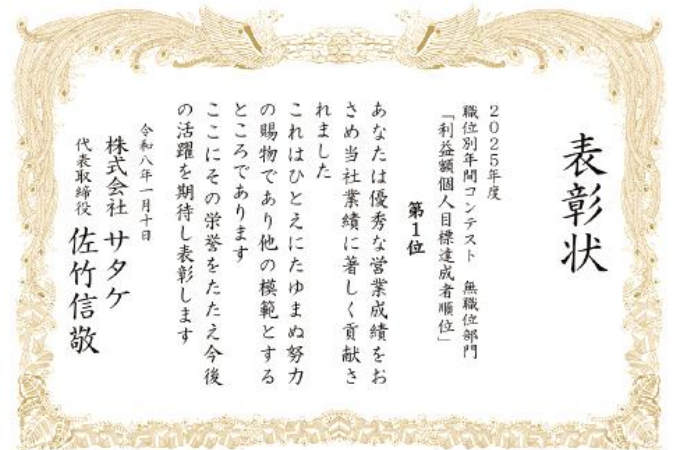 表彰状
2025年度
職位別年間コンテスト　無職位部門
「利益額個人目標達成者順位」
第1位
あなたは優秀な営業成績をお
さめ当社業績に著しく貢献さ
れました
これはひとえにたゆまぬ努力
の賜物であり他の模範とする
ところであります
ここにその栄誉をたたえ今後
の活躍を期待し表彰します
令和八年一月十日
株式会社 サタケ
代表取締役 佐竹信敬